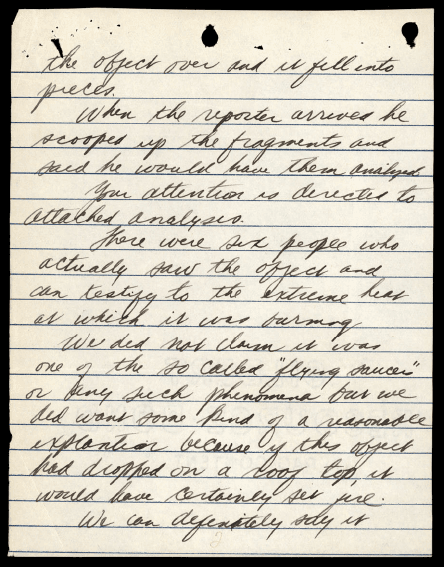 the object over and it fell into
pieces.
When the reporter arrived he
scooped up the fragments and
said he would have them analyzed.
Your attention is directed to
attached analysis.
There were six people who
actually saw the object and
can testify to the extreme heat
at which it was burning
We did not claim it was
one of the so called "flying saucers"
or any such phenomena but we
did want some kind of a reasonable
explantion because if this object
had dropped on a roof top, it
would have certainly set fire.
We can definitely say it